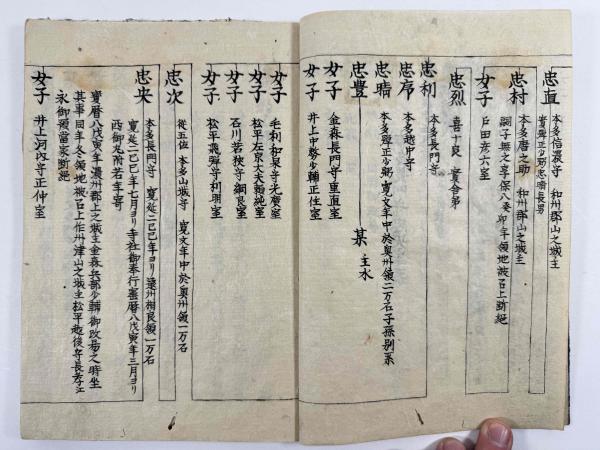 忠直 本多信濃守 和州郡山之城主
實彈正少弼忠晴長男
忠村 本多唐之助 和州郡山之城主
嗣子無之享保八癸卯年領地被召上断絶
女子 戸田彦六室
忠烈 喜十良 實舎弟
忠利 本多長門守
忠序 本多越中守
忠晴 本多彈正少弼 寛文年中於奥州領二万石子孫別系
忠豊 某 主水
女子 金森長門守重直室
女子 井上中務少輔正任室
女子 毛利和泉守光廣室
女子 松平左京大夫頼純室
女子 石川若狭守綱良室
女子 松平飛騨守利明室
忠次 從五位 本多山城守 寛文年中於奥州領一万石
忠央 本多長門守 寛延二己巳年ヨリ遠州相良領一万石
寛延二己巳年七月ヨリ寺社御奉行寳暦八戊寅年三月ヨリ
西御丸附若年寄
寳暦八戊寅年濃州郡上之城主金森兵部少輔御改易之時坐
其事同年冬領地被召上作州津山之城主松平越後守長孝江
永御預當家断絶
女子 井上河内守正仲室